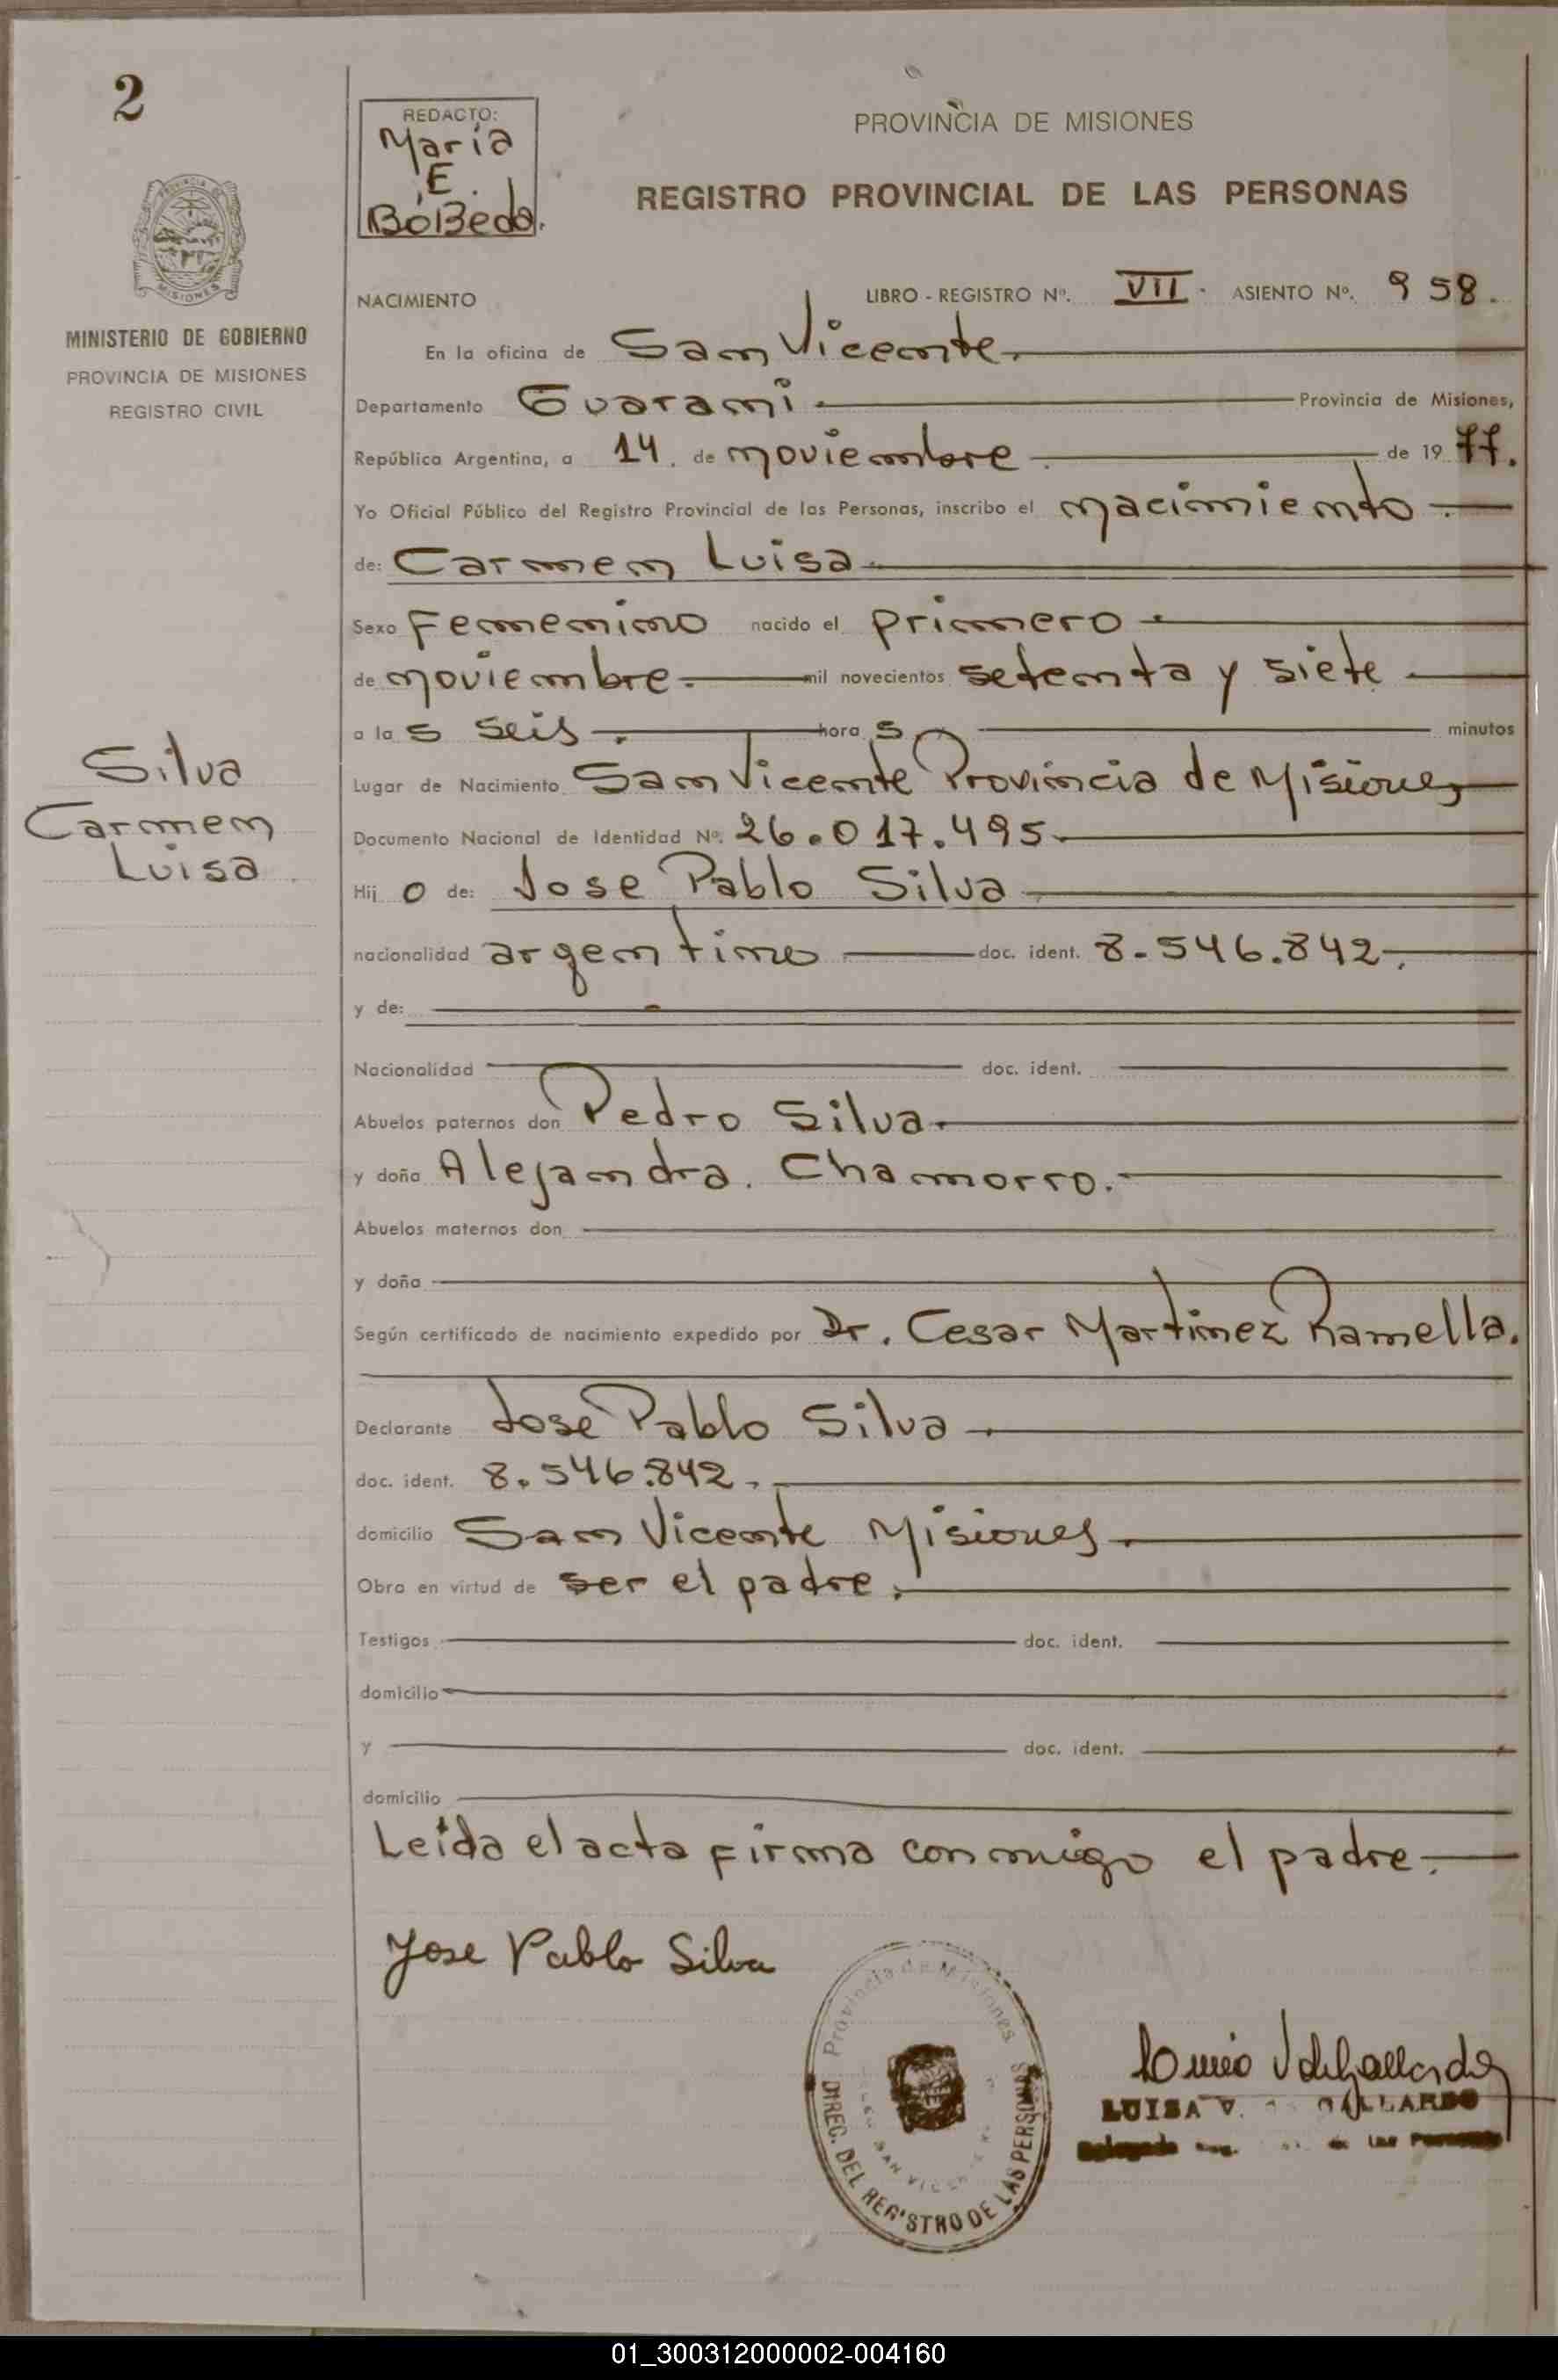 2
REDACTO:
Maria
E.
BóBeda.
PROVINCIA DE MISIONES
REGISTRO PROVINCIAL DE LAS PERSONAS
MISIONES
MINISTERIO DE GOBIERNO
PROVINCIA DE MISIONES
REGISTRO CIVIL
NACIMIENTO
LIBRO - REGISTRO Nº. VII. ASIENTO Nº. 958.
En la oficina de San Vicente.
Departamento Guarani. Provincia de Misiones,
República Argentina, a 14. de noviembre. de 19 77.
Yo Oficial Público del Registro Provincial de las Personas, inscribo el nacimiento.
de: Carmen Luisa.
Sexo Femenino nacido el primero.
de noviembre. mil novecientos setenta y siete
a las seis. horas minutos
Silva
Carmen
Luisa
Lugar de Nacimiento San Vicente Provincia de Misiones
Documento Nacional de Identidad Nº. 26.017.495.
Hij o de: Jose Pablo Silva
nacionalidad argentino doc. ident. 8.546.842.
y de:
Nacionalidad doc. ident.
Abuelos paternos don Pedro Silva.
y doña Alejandra. Chamorro.
Abuelos maternos don
y doña
Según certificado de nacimiento expedido por Dr. Cesar Martinez Ramella.
Declarante Jose Pablo Silva.
doc. ident. 8.546.842.
domicilio San Vicente Misiones.
Obra en virtud de ser el padre.
Testigos doc. ident.
domicilio
y doc. ident.
domicilio
Leida el acta firma conmigo el padre.
Jose Pablo Silva
Provincia de Misiones
DIREC. DEL REGISTRO DE LAS PERSONAS
SAN VICENTE
LUISA V. GALLARDO
01_300312000002-004160